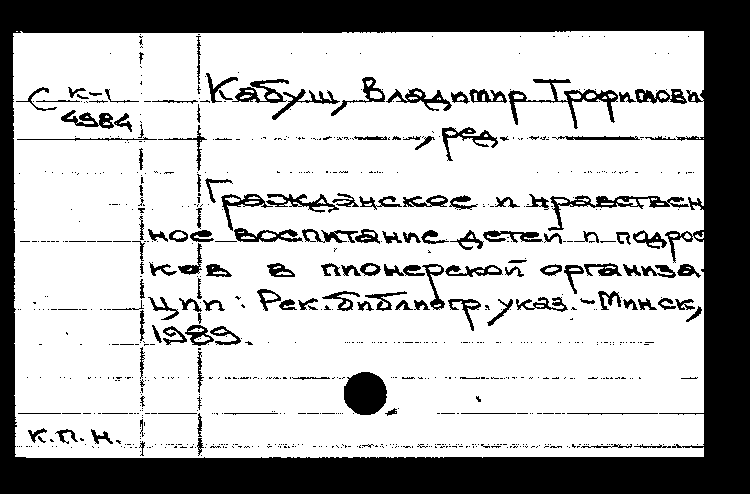 С К-1
4984
Кабуш, Владимир Трофимови
, ред.
Гражданское и нравствен
ное воспитание детей и подрос
ков в пионерской организа-
ции: Рек. библиогр. указ. - Минск,
1989.
К.П.Н.